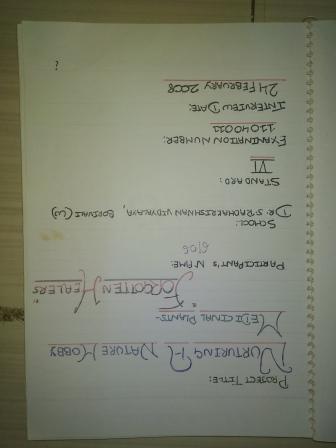 PROJECT TITLE:
NURTURING A NATURE HOBBY
MEDICINAL PLANTS-
"FORGOTTEN HEALERS"
PARTICIPANT'S NAME:
SCHOOL:
DR. S. RADHAKRISHNAN VIDYALAYA, BORIVALI (W)
STANDARD:
VI
EXAMINATION NUMBER:
11040011
INTERVIEW DATE:
24 FEBRUARY 2008
?